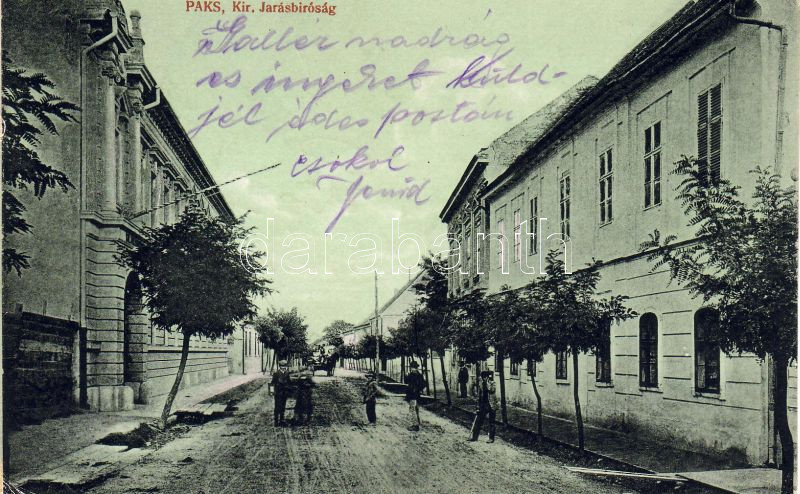 PAKS, Kir. Jarásbiróság
nadrág
és ingeket küld-
jél édes postán
csokol
Jenőd
darabanth